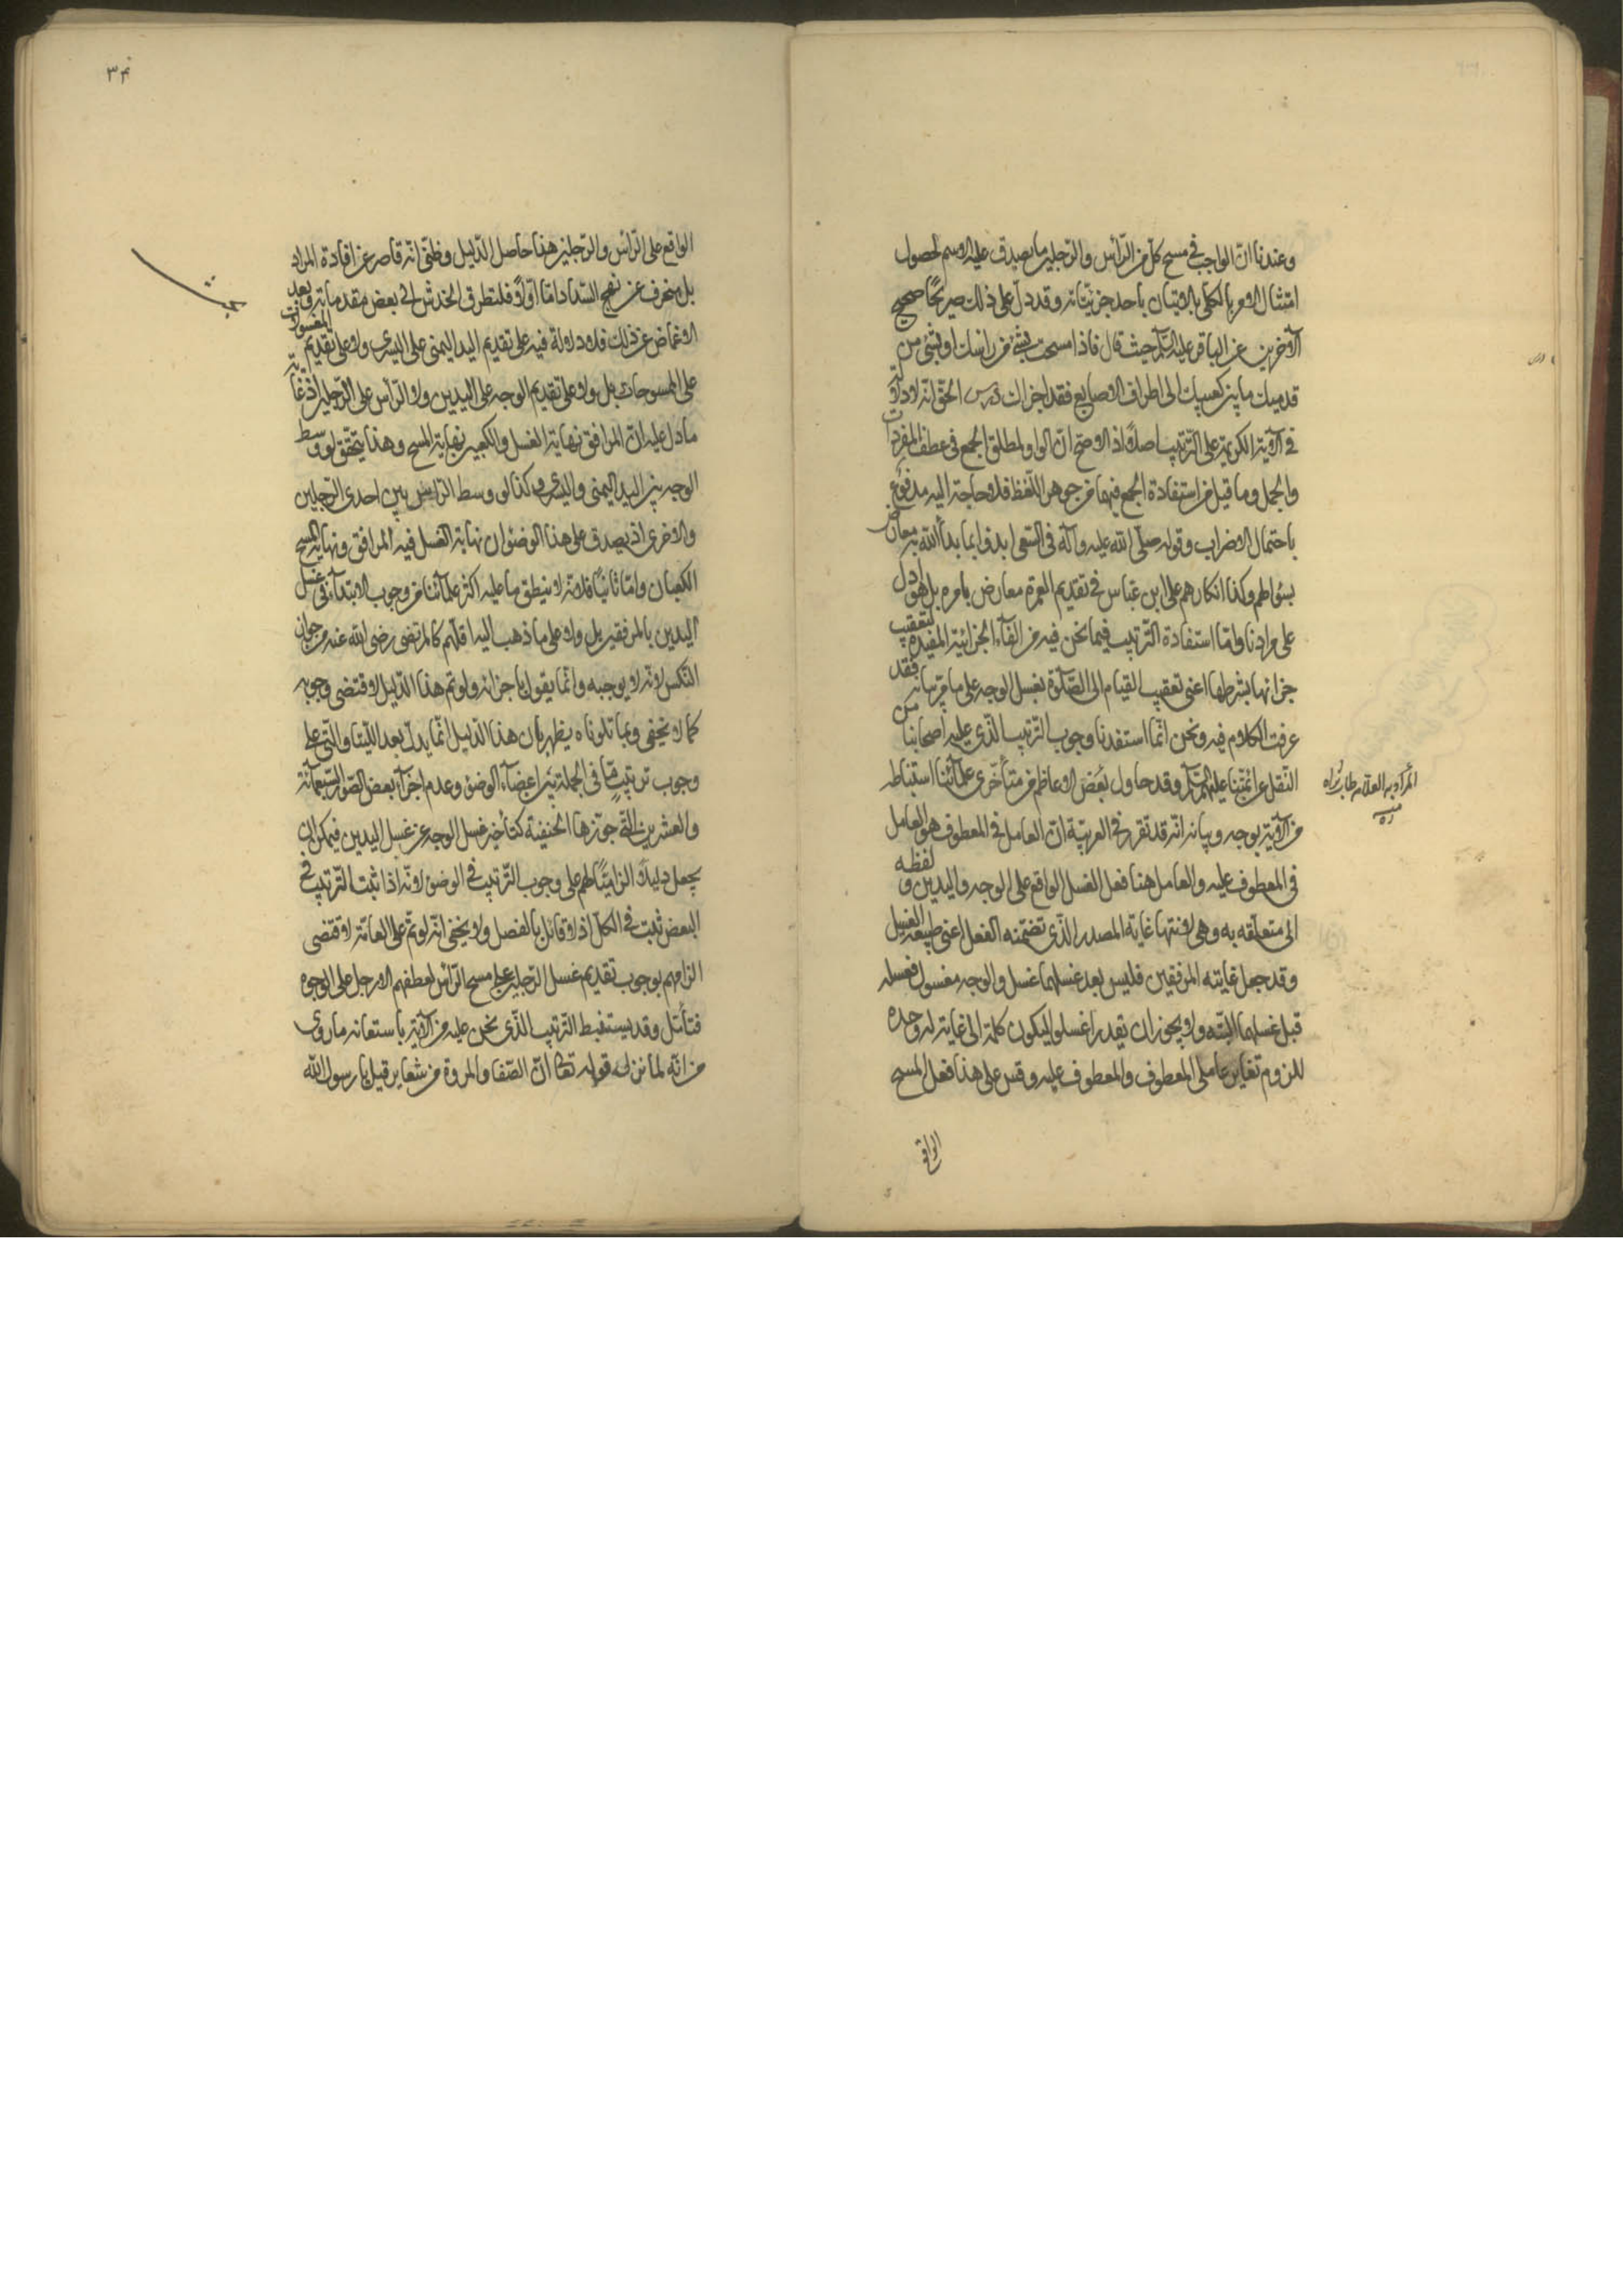 وعندنا ان الواجب في مسح كل من الرأس والرجلين ما يصدق عليه الاسم لحصول
امتثال الامر بالكلي بالاتيان باحد جزئياته وقد دل على ذلك صريحا صحيح
الآخرين عن الباقر عليه السلم حيث قال فاذا مسحت بشئ من راسك او بشئ من
قدميك ما بين كعبيك الى اطراف الاصابع فقد اجزاك درس الحق انه لا دلالة
في الآية الكريمة على الترتيب اصلا اذ الاصح ان الواو لمطلق الجمع في عطف المفردات
والجمل وما قيل من استفادة الجمع فيها من جوهر اللفظ فلا حاجة اليه مدفوع
باحتمال الاضراب وقوله صلى الله عليه وآله في السعي ابدؤا بما بدأ الله به معارض
بسؤالهم وكذا انكارهم على ابن عباس في تقديم العمرة معارض بامره بل هو ادل
على مرادنا واما استفادة الترتيب فيما نحن فيه من الفاء الجزائية المفيدة لتعقيب
جزائها بشرطها اعني تعقيب القيام الى الصلوة بغسل الوجه على ما مر بيانه فقد
عرفت الكلام فيه ونحن انما استفدنا وجوب الترتيب الذي عليه اصحابنا من
النقل عن ائمتنا عليهم السلم وقد حاول بعض الاعاظم من متأخري علمائنا استنباطه
المراد به العلامة طاب ثراه
منه ره
من الآية بوجه وبيانه انه قد تقرر في العربية ان العامل في المعطوف هو العامل
في المعطوف عليه والعامل هنا فعل الغسل الواقع على الوجه واليدين ولفظه
الى متعلقه به وهي لانتهاء غاية المصدر الذي تضمنه الفعل اعني طبيعة الغسل
وقد جعل غايته المرفقين فليس بعد غسلهما غسل والوجه مغسول فغسله
قبل غسلهما البتة ولا يجوز ان يقدر اغسلوا ليكون كلمة الى غاية له وحده
للزوم تغاير عاملي المعطوف والمعطوف عليه وقس على هذا فعل المسح
الواقع
٣٤
الواقع على الرأس والرجلين هذا حاصل الدليل وظني انه قاصر عن افادة المراد
بل منحرف عن نهج السداد اما اولا فلتطرق الخدش الى بعض مقدماته وبعد
الاغماض عن ذلك فلا دلالة فيه على تقديم اليد اليمنى على اليسرى ولا على تقديم المغسولات
على الممسوحات بل ولا على تقديم الوجه على اليدين ولا الرأس على الرجلين اذ غاية
ما دل عليه ان المرافق نهاية الغسل والكعبين نهاية المسح وهذا يتحقق لو وسط
الوجه بين اليد اليمنى واليسرى وكذا لو وسط الراس بين احدى الرجلين
والاخرى اذ يصدق على هذا الوضوء ان نهاية الغسل فيه المرافق ونهاية المسح
الكعبان واما ثانيا فلانه لا ينطق ما عليه اكثر علمائنا من وجوب الابتداء في غسل
اليدين بالمرفقين بل ولا على ما ذهب اليه اقلهم كالمرتضى رضي الله عنه من جواز
النكس لانه لا يوجبه وانما يقول باجزائه ولو تم هذا الدليل لاقتضى وجوبه
كما لا يخفى وبما تلوناه يظهر ان هذا الدليل انما يدل بعد اللتيا والتي على
وجوب ترتيب ما في الجملة بين اعضاء الوضوء وعدم اجزاء بعض الصور السبعمائة
والعشرين التي جوزها الحنفية كتأخير غسل الوجه عن غسل اليدين فيمكن ان
يجعل دليلا الزاميا لهم على وجوب الترتيب في الوضوء لانه اذا ثبت الترتيب في
البعض ثبت في الكل اذ لا قائل بالفصل ولا يخفى انه لو تم على العامة لاقتضى
الزامهم بوجوب تقديم غسل الرجلين على مسح الرأس لعطفهم الارجل على الوجوه
فتأمل وقد يستنبط الترتيب الذي نحن عليه من الآية باستعانة ما روي
من انه لما نزل قوله تعالى ان الصفا والمروة من شعاير قيل يا رسول الله